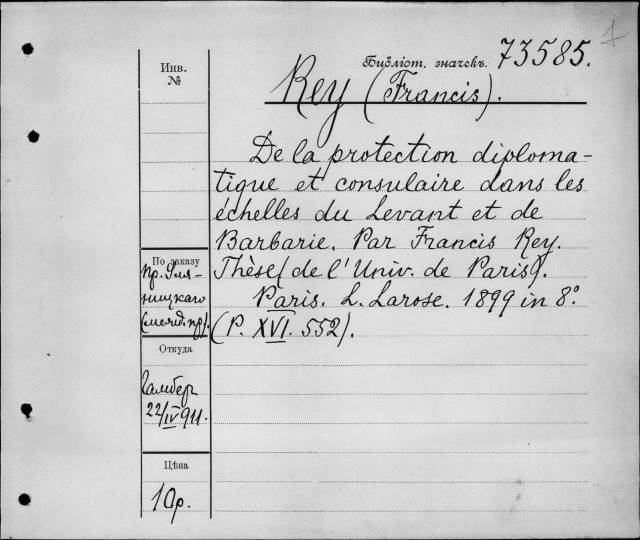 Инв.
№
Библіот. значекъ. 73585.
Rey (Francis).
De la protection diploma-
tique et consulaire dans les
échelles du Levant et de
Barbarie. Par Francis Rey.
Thèse (de l'Univ. de Paris).
Paris. L. Larose. 1899 in 8°
(P. XVI. 552).
По заказу
пр. Уля-
ницкаго
(межд. пр).
Откуда
Ламберъ
22/IV 911.
Цѣна
10р.